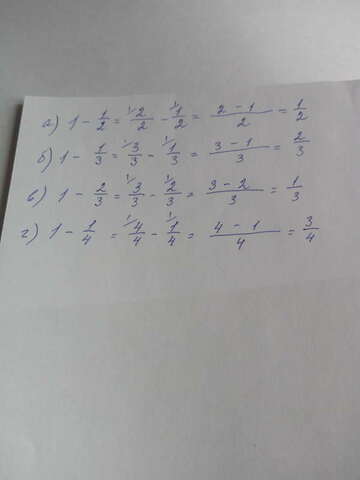 а) 1 - 1/2 = ¹⁄2/2 - ¹⁄1/2 = 2 - 1/2 = 1/2
б) 1 - 1/3 = ¹⁄3/3 - ¹⁄1/3 = 3 - 1/3 = 2/3
в) 1 - 2/3 = ¹⁄3/3 - ¹⁄2/3 = 3 - 2/3 = 1/3
г) 1 - 1/4 = ¹⁄4/4 - ¹⁄1/4 = 4 - 1/4 = 3/4